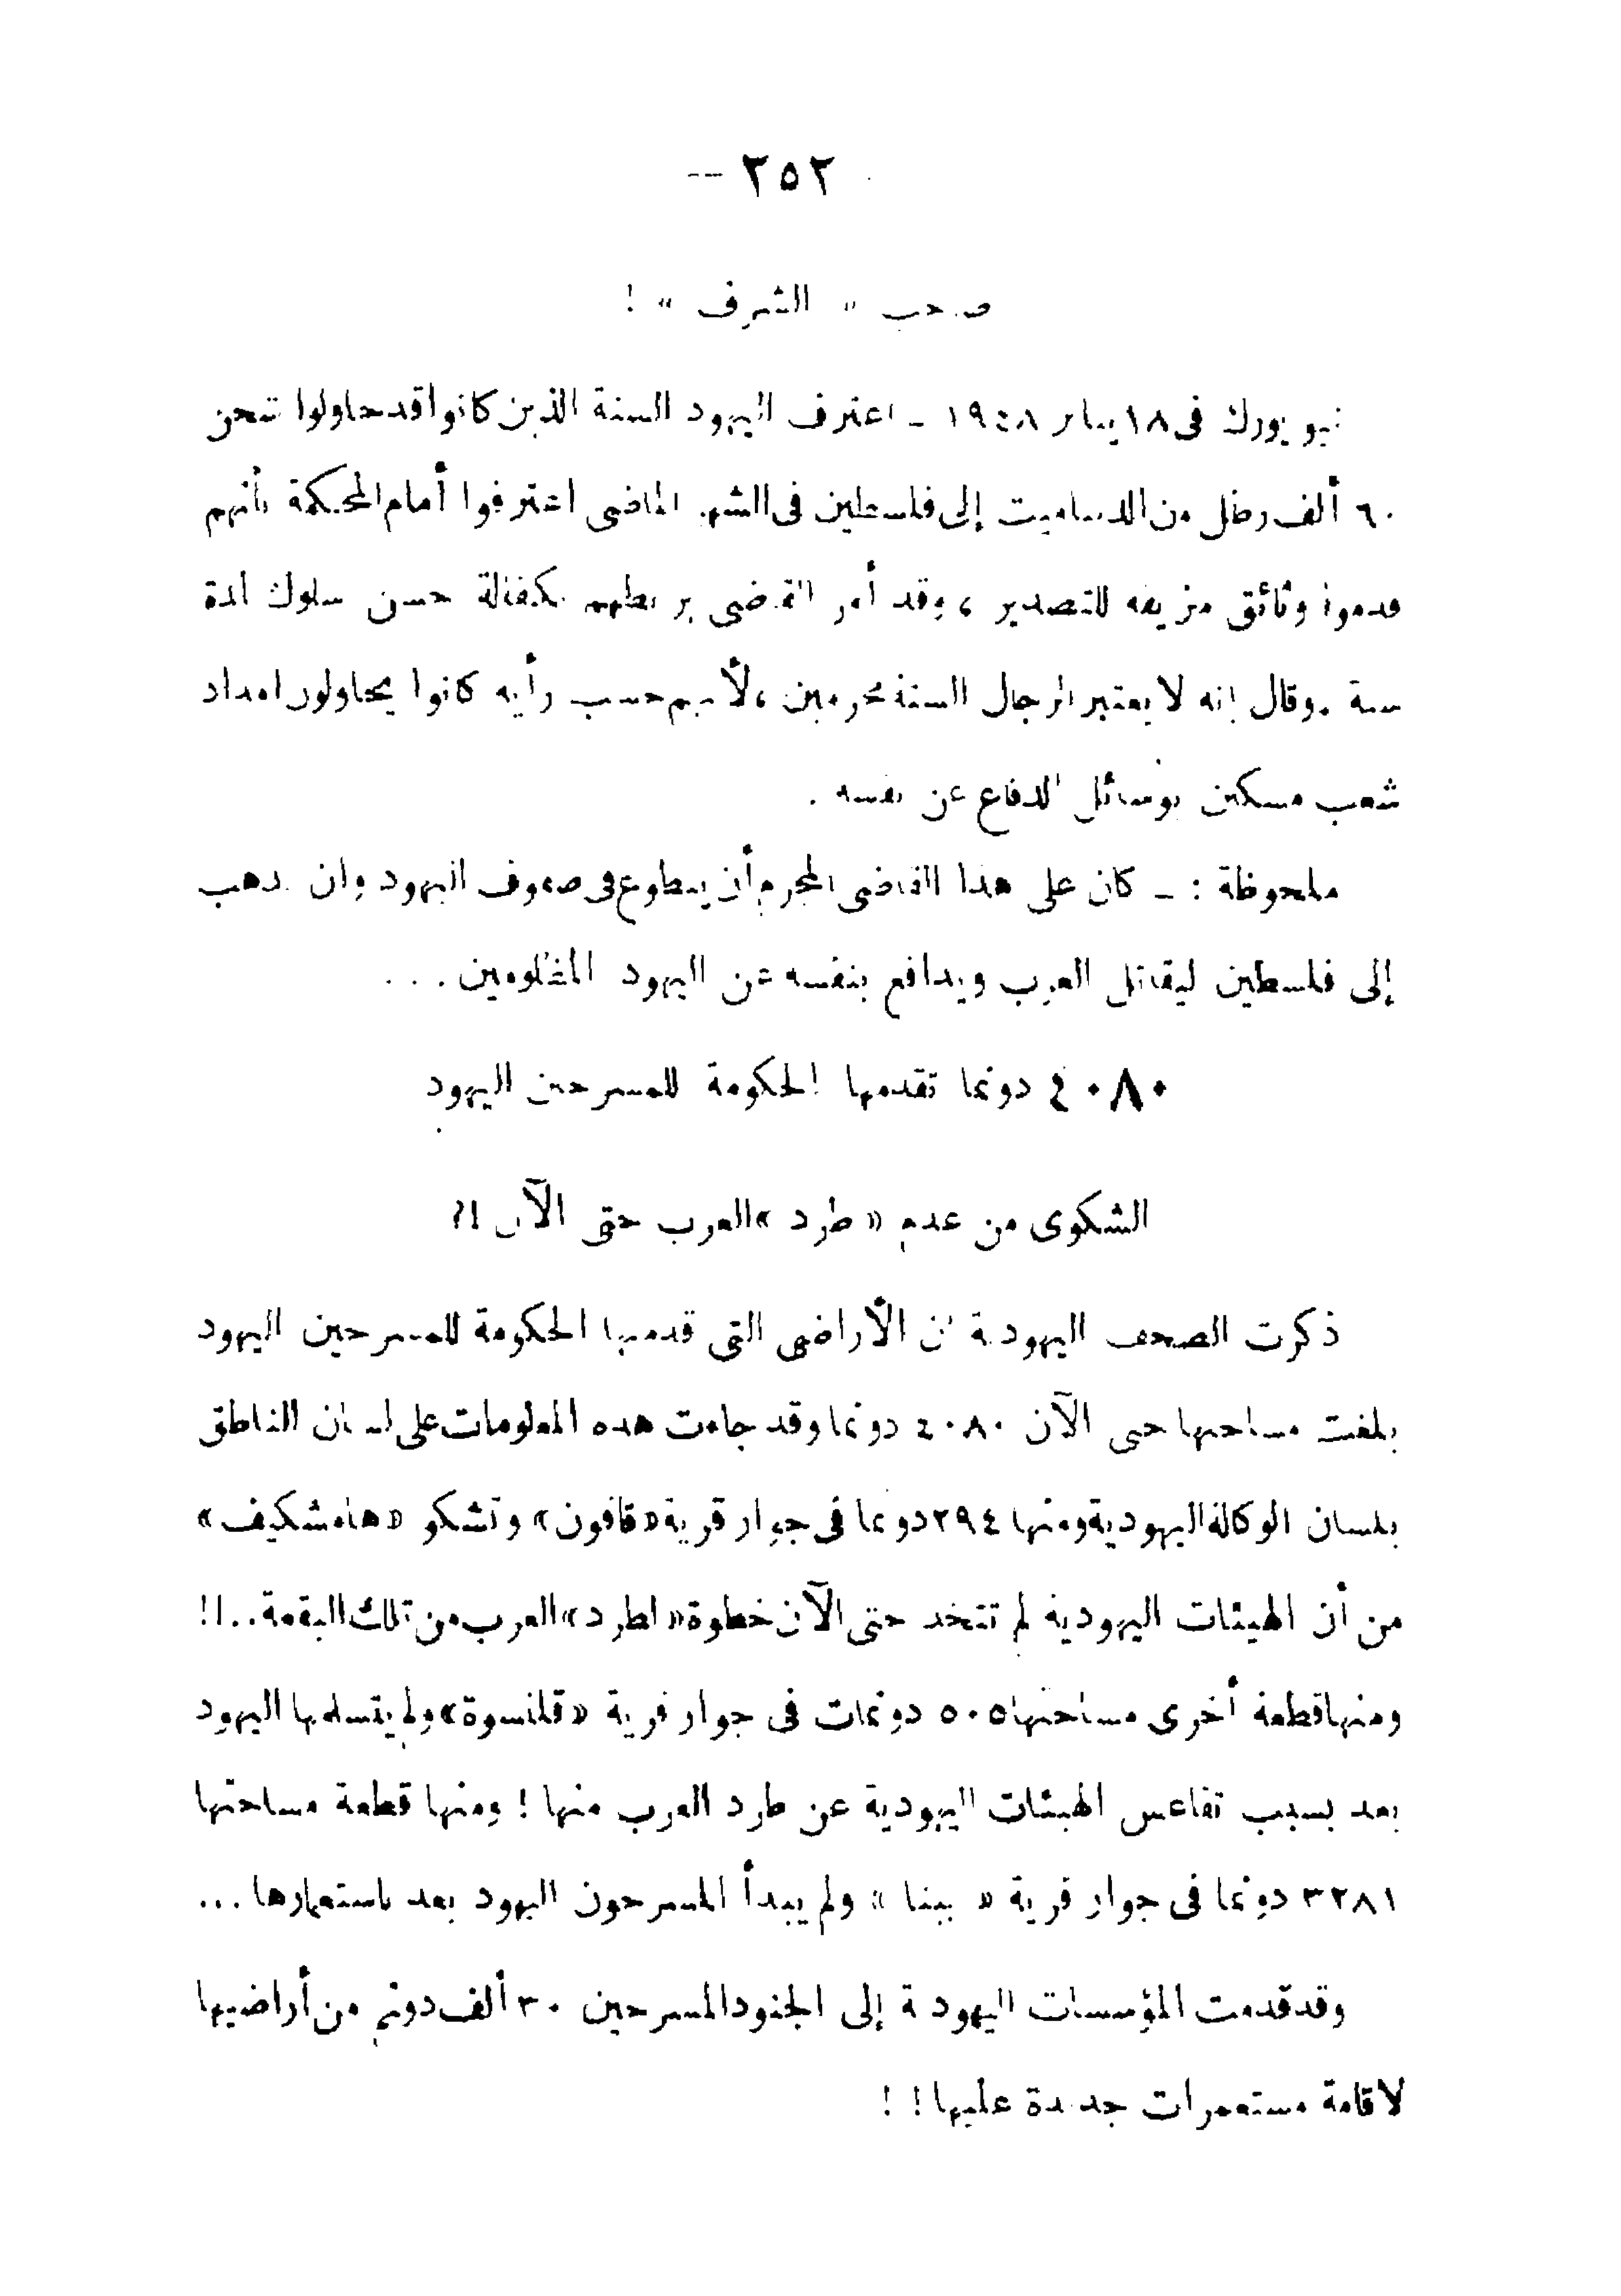 ٢٥٢ --
صاحب « الشرف » !
نيويورك فى ١٨ يناير ١٩٤٨ - اعترف اليهود الستة الذين كانوا قد حاولوا شحن
٦٠ ألف رطل من الديناميت إلى فلسطين فى الشهر الماضى اعترفوا أمام المحكمة بأنهم
قدموا وثائق مزيفة للتصدير ، وقد أمر القاضى بربطهم بكفالة حسن سلوك لمدة
سنة . وقال إنه لا يعتبر الرجال الستة مجرمين ، لأنهم حسب رأيه كانوا يحاولون امداد
شعب مسكين بوسائل الدفاع عن نفسه .
ملحوظة : - كان على هذا القاضى المجرم أن يتطوع فى صفوف اليهود وان يذهب
إلى فلسطين ليقاتل العرب ويدافع بنفسه عن اليهود المظلومين . . .
٤٠٨٠ دونما تقدمها الحكومة للمسرحين اليهود
الشكوى من عدم « طرد » العرب حتى الآن !؟
ذكرت الصحف اليهودية ان الأراضى التى قدمتها الحكومة للمسرحين اليهود
بلغت مساحتها حتى الآن ٤٠٨٠ دونما وقد جاءت هذه المعلومات على لسان الناطق
بلسان الوكالة اليهودية ومنها ٢٩٤ دونما فى جوار قرية « قاقون » وتشكو « هامشكيف »
من أن الهيئات اليهودية لم تتخذ حتى الآن خطوة « لطرد » العرب من تلك البقعة . . !!
ومنها قطعة أخرى مساحتها ٥٠٥ دونمات فى جوار قرية « قلنسوة » ولم يتسلمها اليهود
بعد بسبب تقاعس الهيئات اليهودية عن طرد العرب منها ! ومنها قطعة مساحتها
٣٢٨١ دونما فى جوار قرية « يبنا » ولم يبدأ المسرحون اليهود بعد باستعمارها ...
وقد قدمت المؤسسات اليهودية إلى الجنود المسرحين ٣٠ ألف دونم من أراضيها
لاقامة مستعمرات جديدة عليها ! !